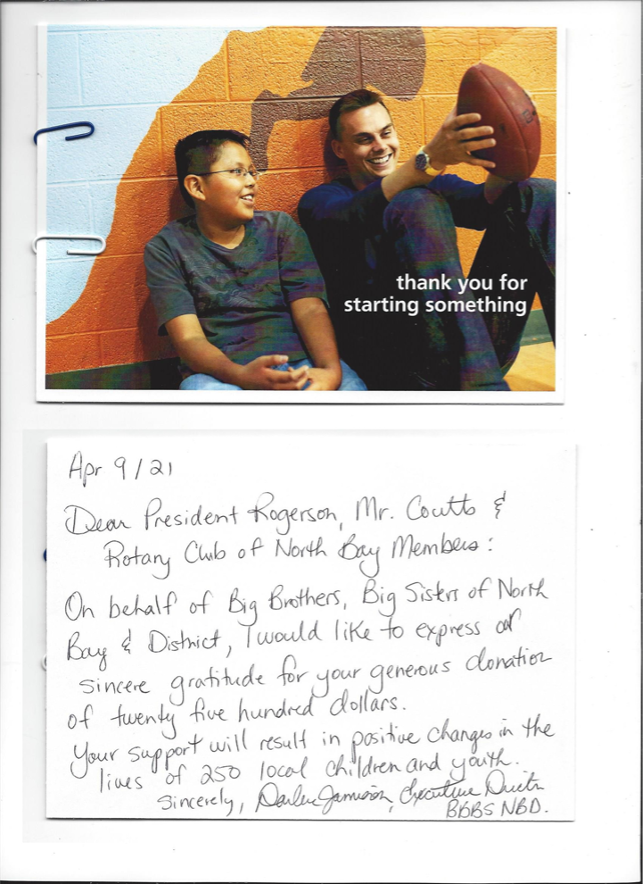 thank you for
starting something
Apr 9/21
Dear President Rogerson, Mr. Coutts &
Rotary Club of North Bay Members:
On behalf of Big Brothers, Big Sisters of North
Bay & District, I would like to express our
sincere gratitude for your generous donation
of twenty five hundred dollars.
Your support will result in positive changes in the
lives of 250 local children and youth.
Sincerely, Darlene Jamieson, Executive Director
BBBS NBD.